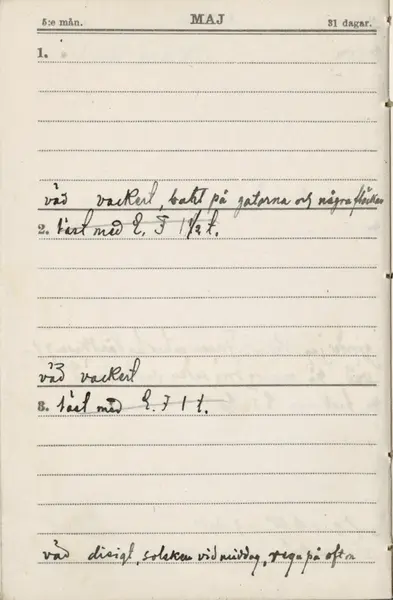 5:e mån. MAJ 31 dagar.
1.
väd vackert, bart på gatorna och några fläckar
2. läst med E. F 1 1/2 t.
väd vackert
3. läst med E. F 1 t.
väd disigt, solsken vid middag, regn på efton